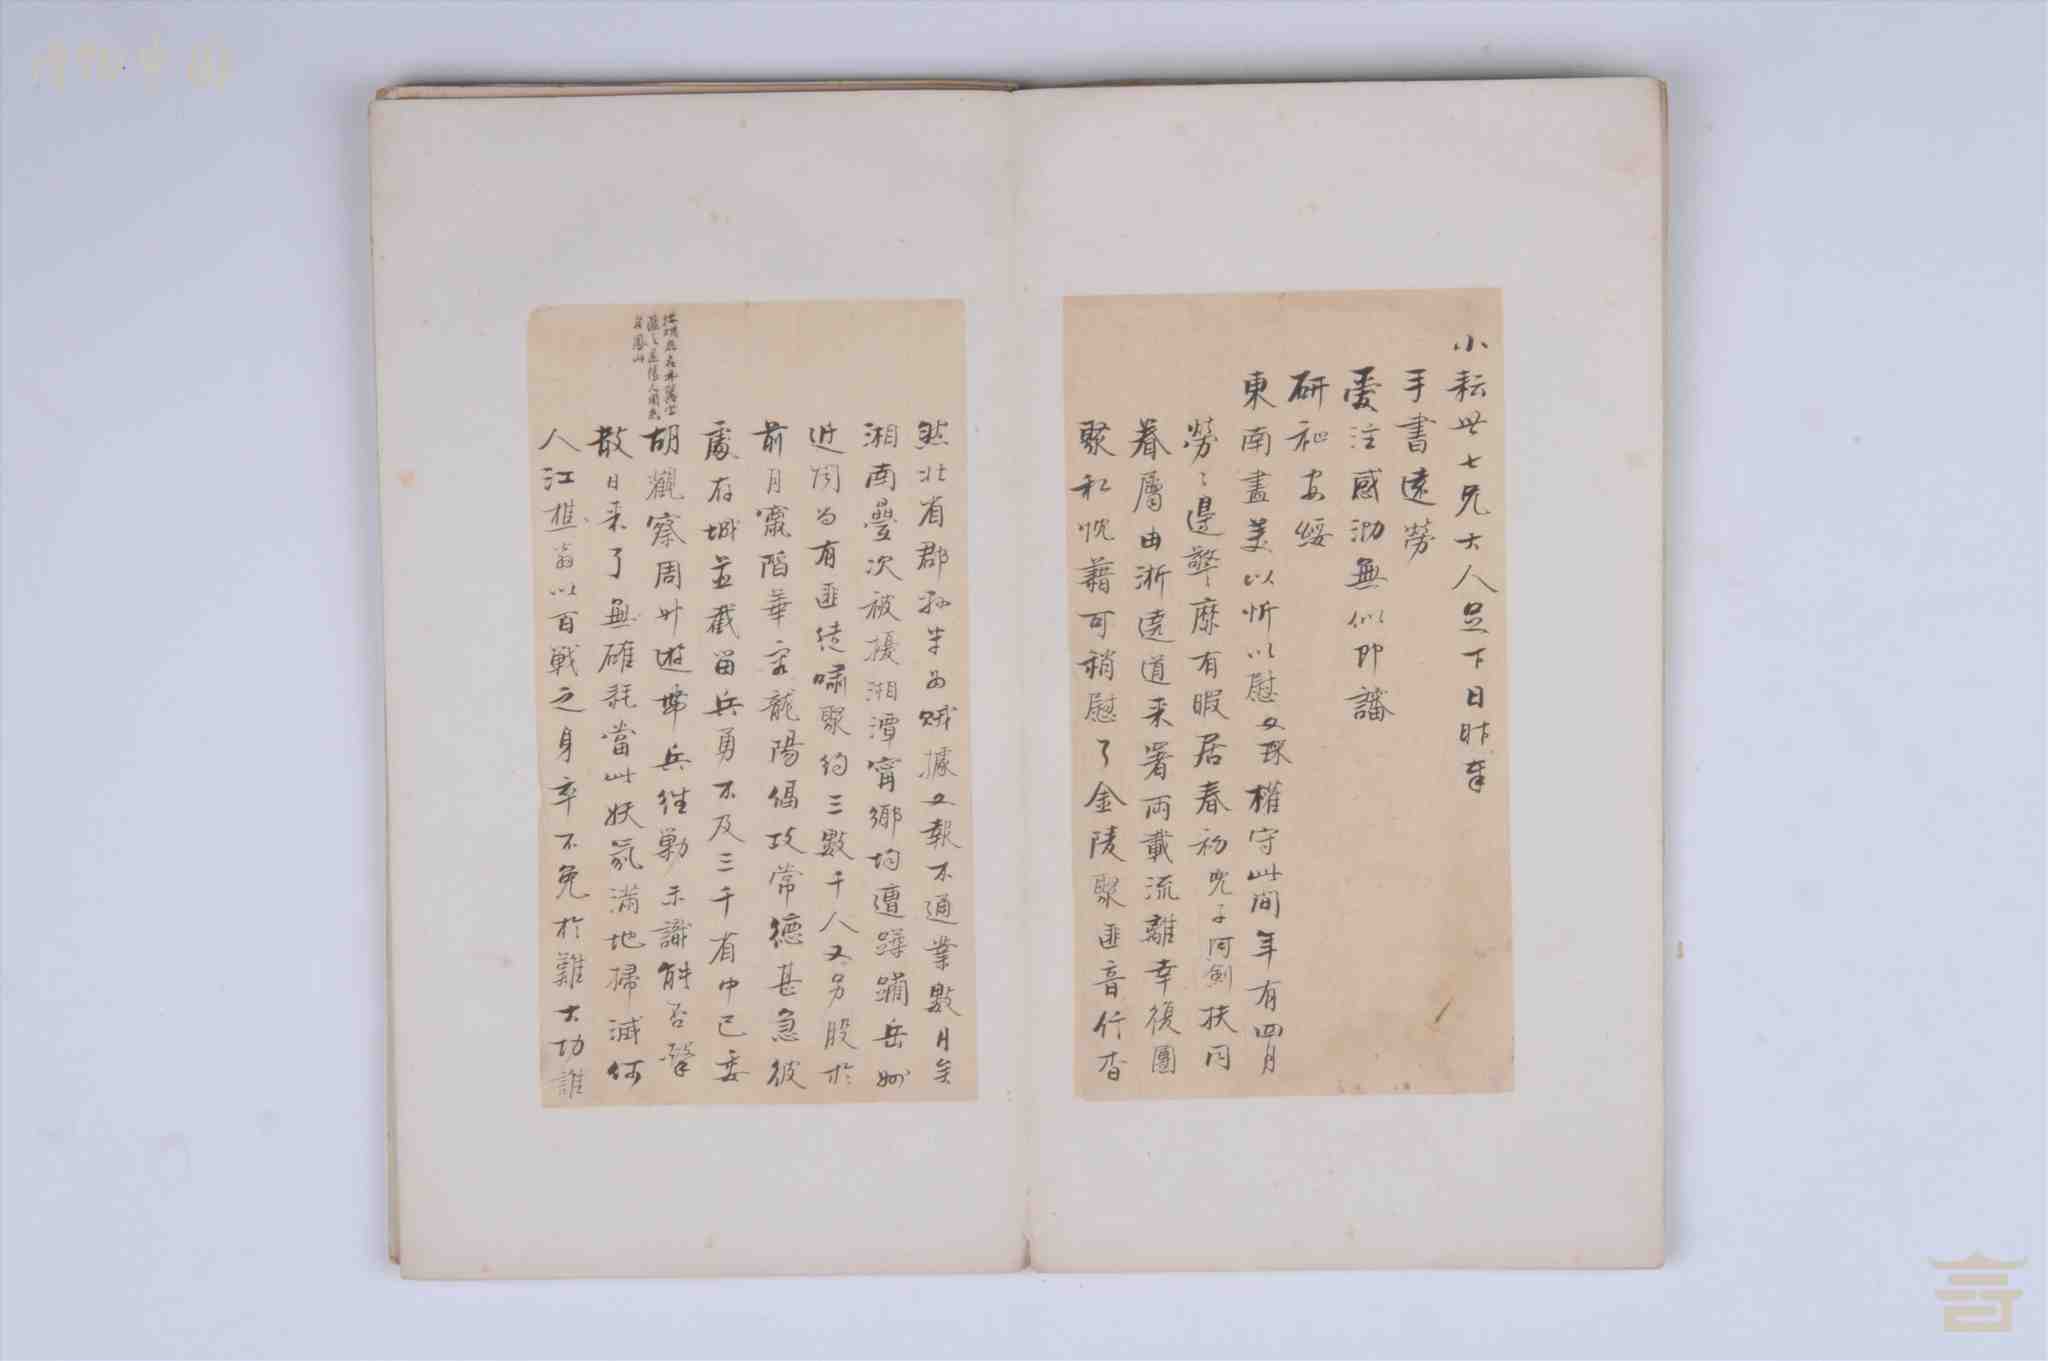 小耘世七兄大人足下日昨奉
手書遠勞
愛注感泐無似即譜
研祉安綏
東南盡美以忻以慰文琛權守此間年有四月
勞〻邊警〻靡有暇居春初兒子阿劍扶同
眷屬由浙遠道来署兩載流離幸復團
聚私悰藉可稍慰了金陵聚匪音信杳
然北省郡縣半為賊據文報不通業數月矣
湘南疊次被擾湘潭甯鄉均遭蹂躪岳州
近因尚有匪徒嘯聚約三數千人又另股於
前月竄陷華容龍陽偪攻常德甚急彼
處存城並截留兵勇不及三千有中已委
胡觀察周升遊带兵往勦未識能否擊
散日来了無確耗當此妖氛滿地掃滅何
人江樵翁以百戰之身卒不免於難大功誰
博物中国